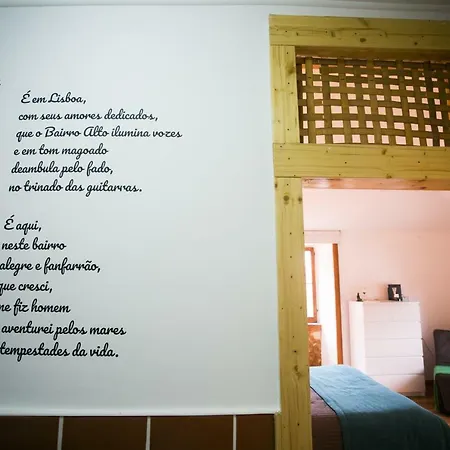 É em Lisboa,
com seus amores dedicados,
que o Bairro Alto ilumina vozes
e em tom magoado
deambula pelo fado,
no trinado das guitarras.
É aqui,
neste bairro
alegre e fanfarrão,
que cresci,
me fiz homem
aventurei pelos mares
tempestades da vida.